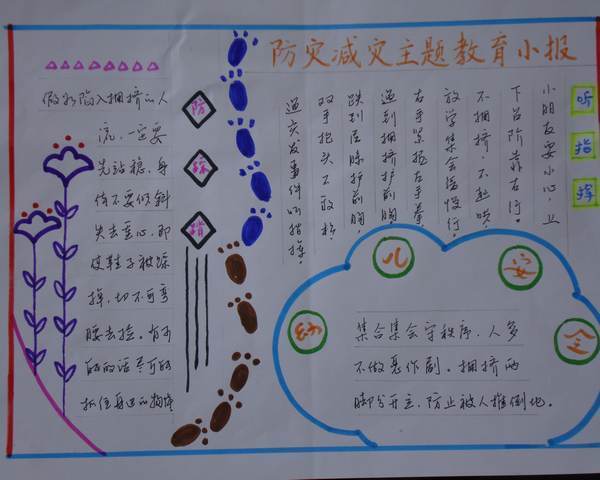 防灾减灾主题教育小报
假如陷入拥挤的人
流,一定要
先站稳,身
体不要倾斜
失去重心,即
使鞋子被踩
掉,切不可弯
腰去捡。有可
能的话尽可能
抓住身边的物体
防踩踏
听指挥
小朋友要小心,上
下台阶靠右行。
不拥挤,不起哄,
放学集会缓慢行。
右手紧抱左手拳,
遇到拥挤护前胸,
跌到屈膝护前胸,
双手抱头不敢松,
遇突发事件听指挥。
幼儿安全
集合集会守秩序,人多
不做恶作剧。拥挤两
脚分开主,防止被人推倒地。